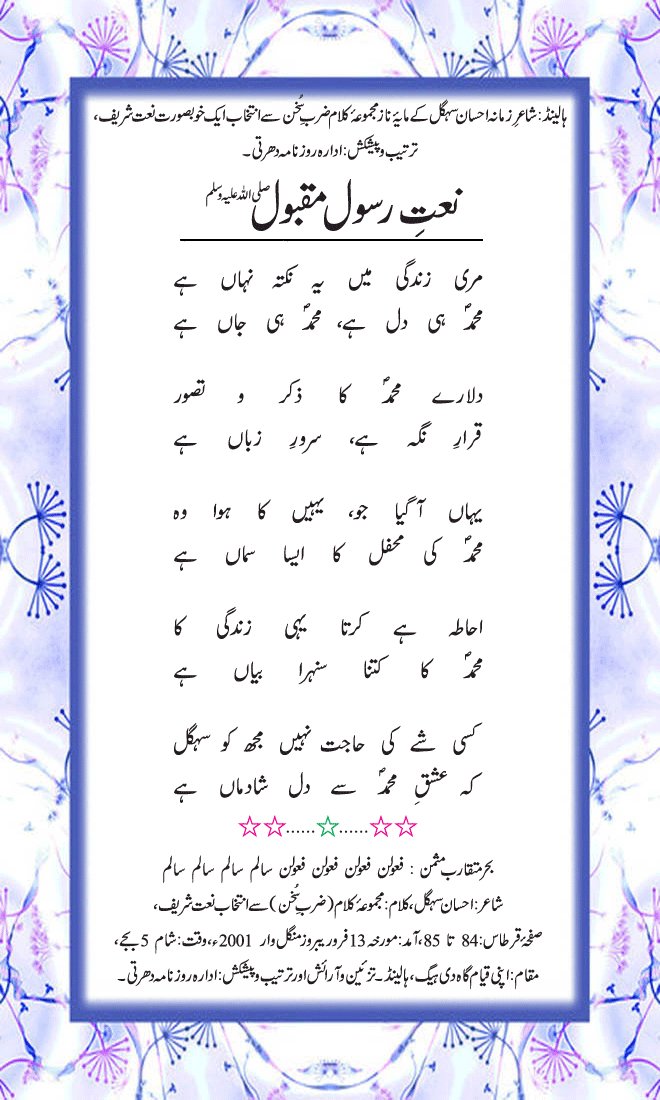 ہالینڈ: شاعرِ زمانہ احسان سہگل کے مایۂ ناز مجموعۂ کلام ضربِ سُخن سے انتخاب ایک خوبصورت نعت شریف،
ترتیب و پیشکش: ادارہ روزنامہ دھرتی۔
نعتِ رسول مقبول صلی اللہ علیہ وسلم
مری زندگی میں یہ نکتہ نہاں ہے
محمدؐ ہی دل ہے، محمدؐ ہی جاں ہے
دلارے محمدؐ کا ذکر و تصور
قرارِ نگہ ہے، سرورِ زباں ہے
یہاں آ گیا جو، یہیں کا ہوا وہ
محمدؐ کی محفل کا ایسا سماں ہے
احاطہ ہے کرتا یہی زندگی کا
محمدؐ کا کتنا سنہرا بیاں ہے
کسی شے کی حاجت نہیں مجھ کو سہگل
کہ عشقِ محمدؐ سے دل شادماں ہے
☆☆......☆......☆☆
بحر متقارب مثمن : فعولن فعولن فعولن فعولن سالم سالم سالم سالم
شاعر: احسان سہگل، کلام: مجموعۂ کلام (ضربِ سُخن) سے انتخاب نعت شریف،
صفحۂ قرطاس: 84 تا 85، آمد: مورخہ 13 فرور بروز منگل وار 2001ء، وقت: شام 5 بجے،
مقام: اپنی قیام گاہ دی ہیگ، ہالینڈ۔ تزئین و آرائش اور ترتیب و پیشکش: ادارہ روزنامہ دھرتی۔